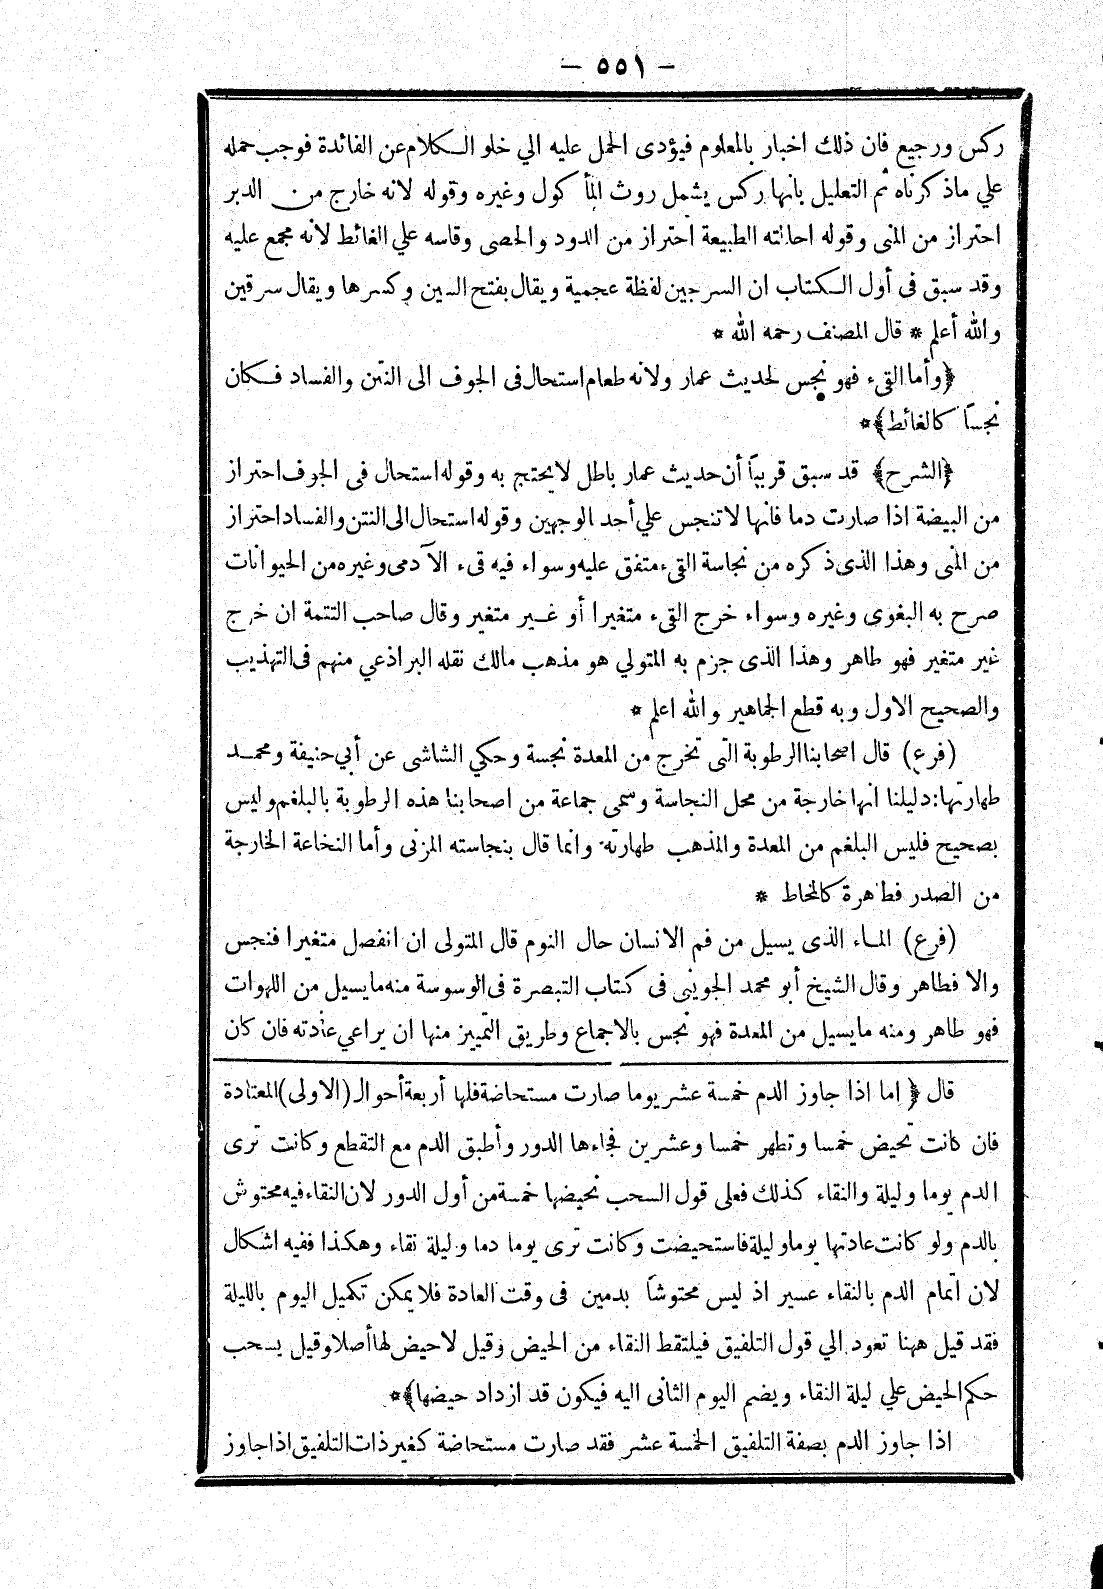 - ٥٥١ -
ركس ورجيع فان ذلك اخبار بالمعلوم فيؤدى الحمل عليه الي خلو الكلام عن الفائدة فوجب حمله
علي ماذكرناه ثم التعليل بانها ركس يشمل روث المأكول وغيره وقوله لانه خارج من الدبر
احتراز من المنى وقوله احالته الطبيعة احتراز من الدود والحصى وقاسه علي الغائط لانه مجمع عليه
وقد سبق فى أول الكتاب ان السرجين لفظة عجمية ويقال بفتح السين وكسرها ويقال سرقين
والله أعلم * قال المصنف رحمه الله *
﴿وأما القىء فهو نجس لحديث عمار ولانه طعام استحال فى الجوف الى النتن والفساد فكان
نجسا كالغائط﴾*
﴿الشرح﴾ قد سبق قريبا أن حديث عمار باطل لا يحتج به وقوله استحال فى الجوف احتراز
من البيضة اذا صارت دما فانها لا تنجس علي أحد الوجهين وقوله استحال الى النتن والفساد احتراز
من المنى وهذا الذى ذكره من نجاسة القىء متفق عليه وسواء فيه قىء الآدمى وغيره من الحيوانات
صرح به البغوى وغيره وسواء خرج القىء متغيرا أو غير متغير وقال صاحب التتمة ان خرج
غير متغير فهو طاهر وهذا الذى جزم به المتولي هو مذهب مالك نقله البراذعي منهم فى التهذيب
والصحيح الاول وبه قطع الجماهير والله اعلم *
(فرع) قال اصحابنا الرطوبة التى تخرج من المعدة نجسة وحكي الشاشى عن أبي حنيفة ومحمد
طهارتها: دليلنا انها خارجة من محل النجاسة وسمى جماعة من اصحابنا هذه الرطوبة بالبلغم وليس
بصحيح فليس البلغم من المعدة والمذهب طهارته وانما قال بنجاسته المزنى وأما النخاعة الخارجة
من الصدر فطاهرة كالمخاط *
(فرع) الماء الذى يسيل من فم الانسان حال النوم قال المتولى ان انفصل متغيرا فنجس
والا فطاهر وقال الشيخ أبو محمد الجوينى فى كتاب التبصرة فى الوسوسة منه مايسيل من اللهوات
فهو طاهر ومنه مايسيل من المعدة فهو نجس بالاجماع وطريق التمييز منها ان يراعي عادته فان كان
قال ﴿ اما اذا جاوز الدم خمسة عشر يوما صارت مستحاضة فلها أربعة أحوال (الاولى) المعتادة
فان كانت تحيض خمسا وتطهر خمسا وعشرين فجاءها الدور وأطبق الدم مع التقطع وكانت ترى
الدم يوما وليلة والنقاء كذلك فعلى قول السحب نحيضها خمسة من أول الدور لان النقاء فيه محتوش
بالدم ولو كانت عادتها يوما وليلة فاستحيضت وكانت ترى يوما دما وليلة نقاء وهكذا ففيه اشكال
لان اتمام الدم بالنقاء عسير اذ ليس محتوشا بدمين فى وقت العادة فلا يمكن تكميل اليوم بالليلة
فقد قيل ههنا تعود الي قول التلفيق فيلتقط النقاء من الحيض وقيل لا حيض لها أصلا وقيل يسحب
حكم الحيض علي ليلة النقاء ويضم اليوم الثانى اليه فيكون قد ازداد حيضها﴾*
اذا جاوز الدم بصفة التلفيق الخمسة عشر فقد صارت مستحاضة كغير ذات التلفيق اذا جاوز